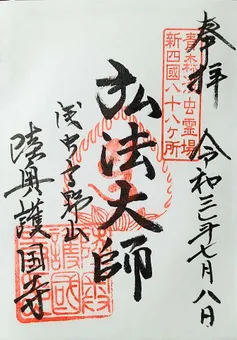 奉拝 令和三年七月八日
青森浅虫霊場
新四國八十八ヶ所
弘法大師
浅虫高野山
陸奥護国寺